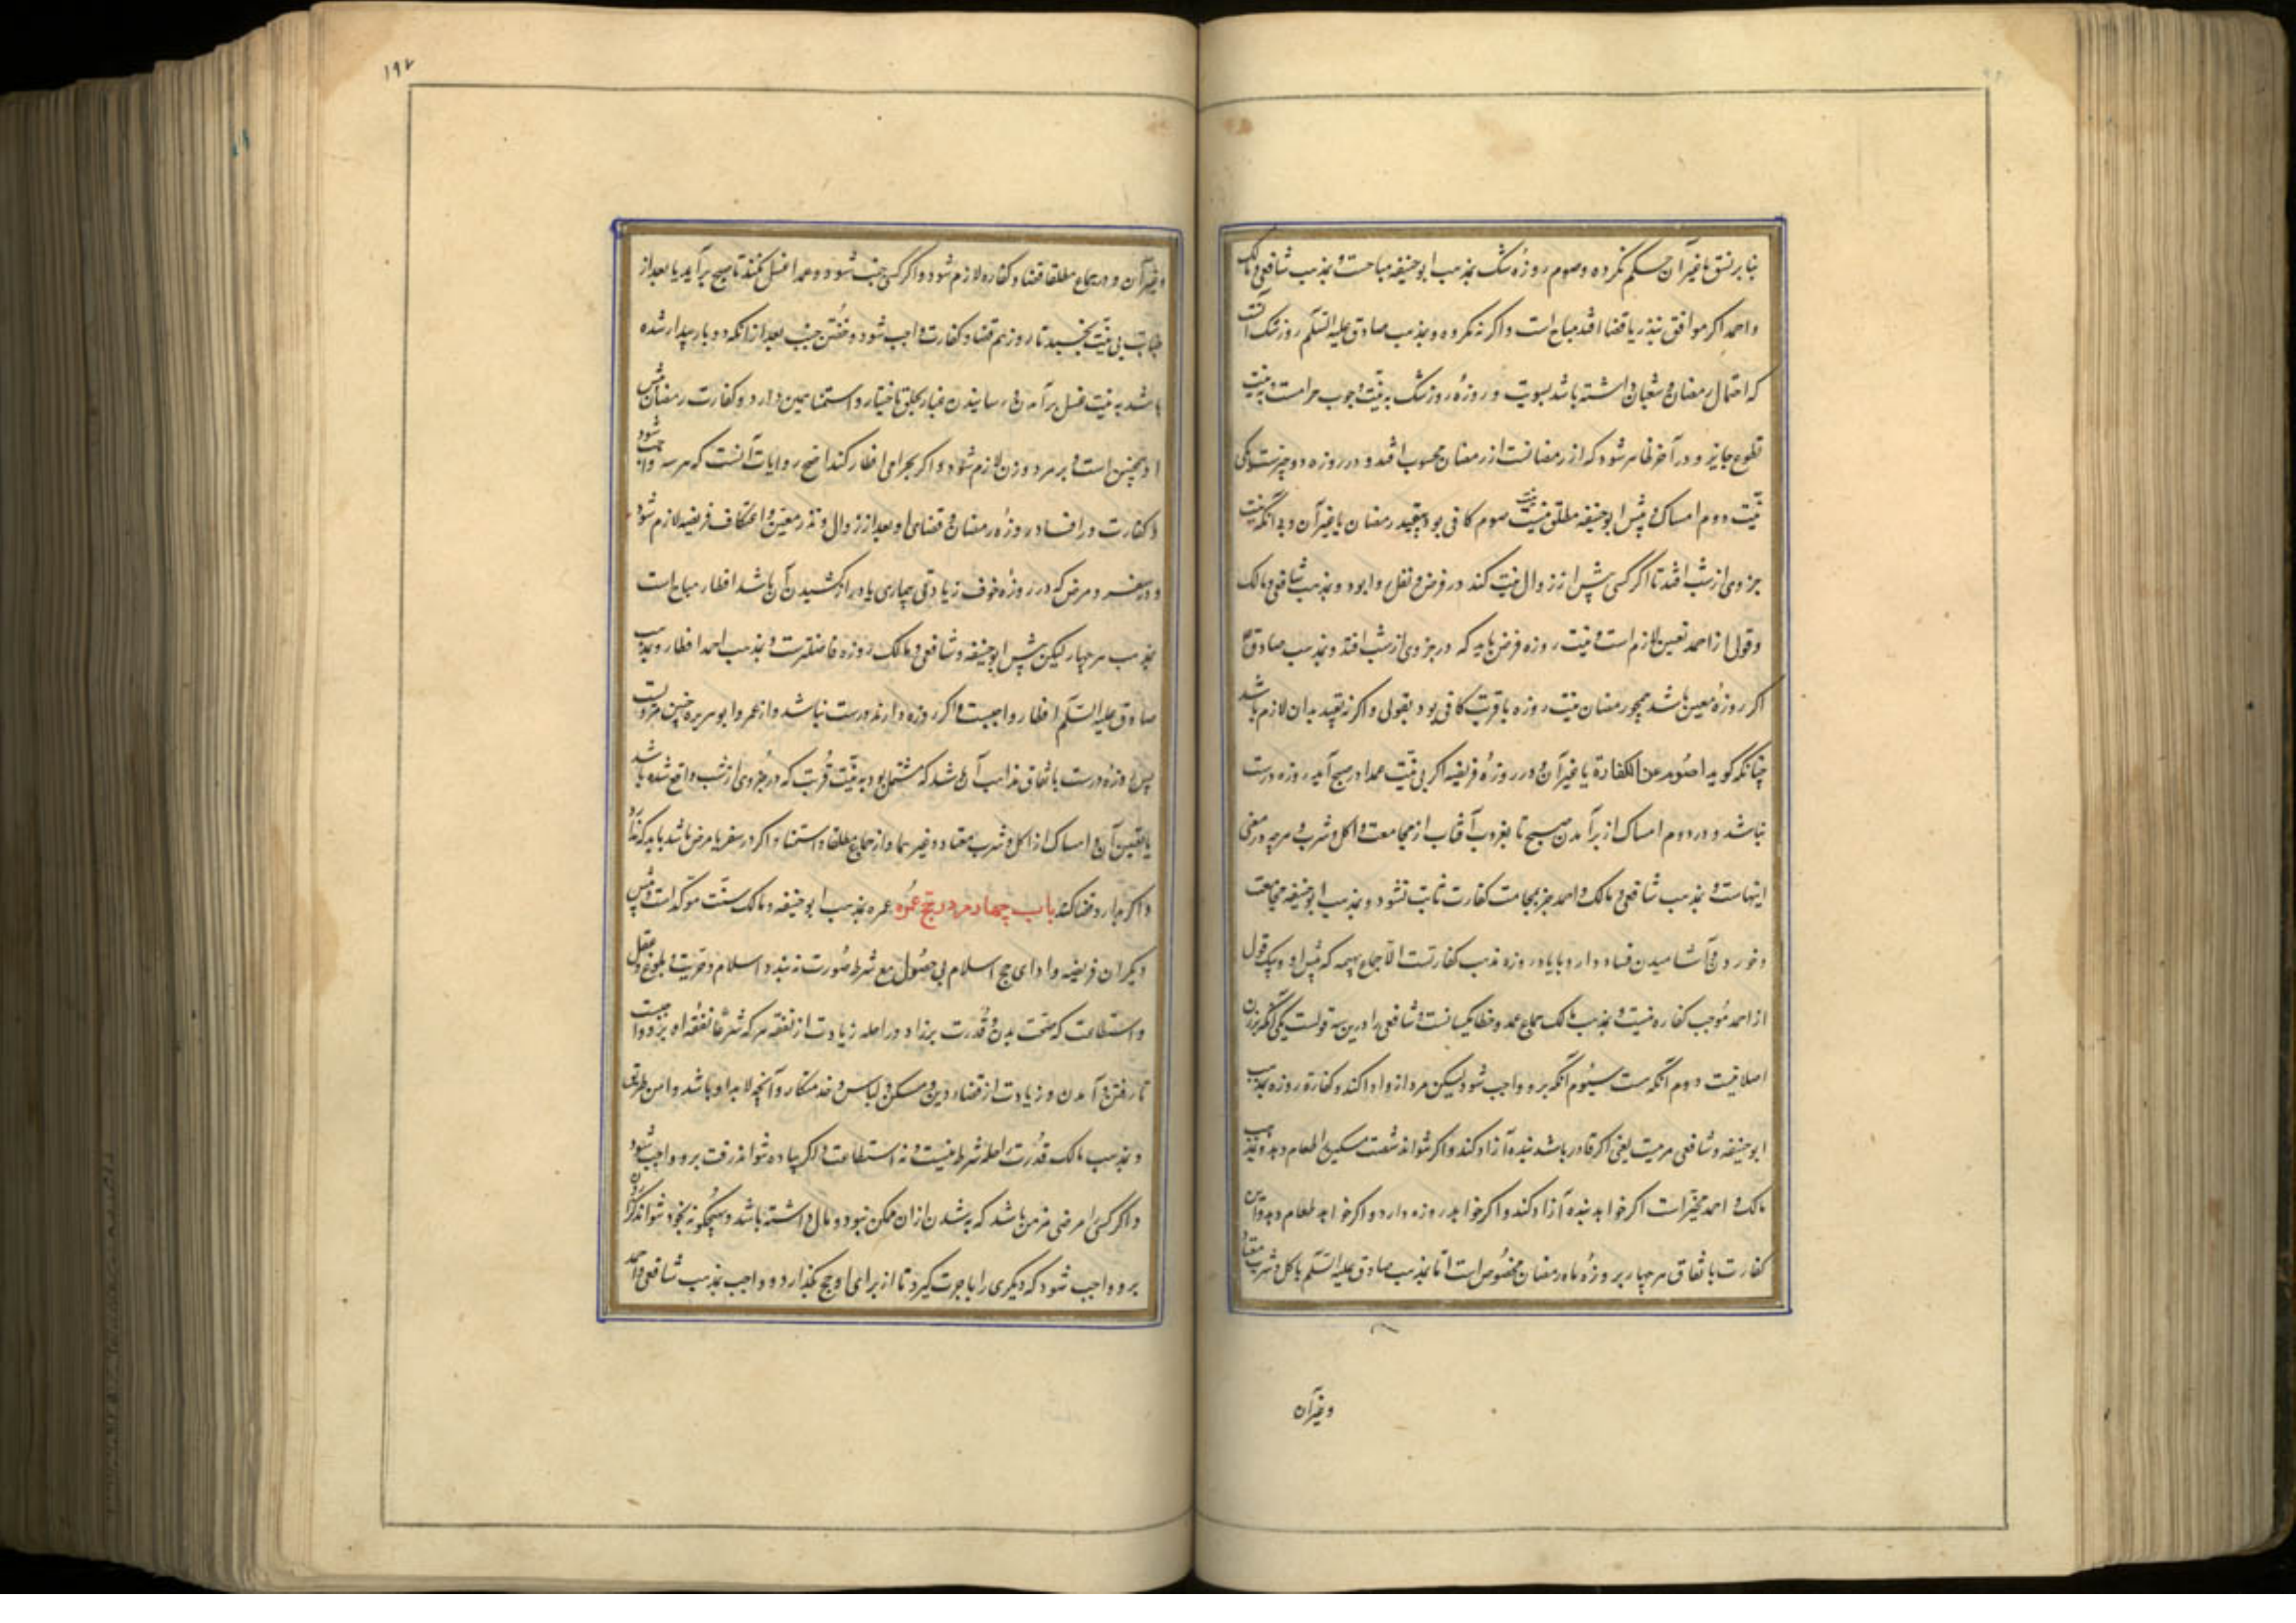 بنا بر نسق یا غیر آن حکم نکرده و صوم روزهٔ شک بمذهب ابو حنیفه مباحست و بمذهب شافعی و مالک
و احمد اگر موافق نذر یا قضا افتد مباح است و اگر نه مکروه و بمذهب صادق علیه السلّم روز شک آنست
که احتمال رمضان و شعبان داشته باشد بسویت و روزهٔ روز شک به نیّت وجوب حرامست و به نیت
تطوع جایز و در آخر ظاهر شود که از رمضانست از رمضان محسوب افتد و در روزه دو چیزست یکی
نیّت دوم امساک و پیش ابو حنیفه مطلق نیت صوم کافی بود بی تقیید رمضان یا غیر آن و به آنکه نیت
جزوی از شب افتد تا اگر کسی پیش از زوال نیت کند در فرض و نفل روا بود و بمذهب شافعی و مالک
و قولی از احمد تعیین لازم است و نیت روزه فرض باید که در جزوی از شب افتد و بمذهب صادق
اگر روزهٔ معین باشد همچو رمضان نیت روزه با قربت کافی بود بقولی و اگر نه تقیید بدان لازم باشد
چنانکه گوید اصوم عن الکفارة یا غیر آن و در روزهٔ فریضه اگر بی نیت عمدا در صبح آید روزه درست
نباشد و در دوم امساک از برآمدن صبح تا بغروب آفتاب از مجامعت و اکل و شرب و هرچه در معنی
اینهاست و بمذهب شافعی و مالک و احمد جز بمجامعت کفارت ثابت نشود و بمذهب ابو حنیفه مجامعت
و خوردن و آشامیدن فساد دارو یا در روزه مذهب کفارتست الا جماع بهیمه که پیش او و بیک قول
از احمد موجب کفاره نیست و بمذهب مالک جماع عمد و خطا یکسانست و شافعی را درین سه قولست یکی آنکه بر زن
اصلا نیست دوم آنکه هست سیوم آنکه برو واجب شود لیکن مرد از و ادا کند و کفارة روزه بمذهب
ابو حنیفه و شافعی مرتبست یعنی اگر قادر باشد بنده آزاد کند و اگر نتواند شصت مسکین را طعام دهد و بمذهب
مالک و احمد مخیّر است اگر خواهد بنده آزاد کند و اگر خواهد روزه دارد و اگر خواهد طعام دهد و این
کفارت باتفاق هر چهار بر روزهٔ ماه رمضان مخصوص است اما بمذهب صادق علیه السلّم باکل و شرب معتاد
و غیر آن
۱۹۲
و غیر آن و در جماع مطلقا قضا و کفاره لازم شود و اگر کسی جنب شود و عمدا غسل نکند تا صبح برآید یا بعد از
جنابت بی نیّت بخسبد تا روز هم قضا و کفارت واجب شود و خفتن جنب بعد از آنکه دو بار بیدار شده
باشد به نیت غسل برآمدن و رسانیدن غبار بحلق باختیار و استمنا همین دارد و کفارت رمضان پیش
او همچنین است و بر مرد و زن لازم شود و اگر بحرامی افطار کند اصح روایات آنست که هر سه واجب شود
و کفارت در افساد روزهٔ رمضان و قضای او بعد از زوال و نذر معین و اعتکاف فریضه لازم شود
و در سفر و مرض که در روزه خوف زیادتی بیماری یا دراز کشیدن آن باشد افطار مباح است
بمذهب هر چهار لیکن پیش ابو حنیفه و شافعی و مالک روزه فاضلترست و بمذهب احمد افطار و بمذهب
صادق علیه السلّم افطار واجبست و اگر روزه دارند درست نباشد و از عمر و ابو هریره همین مرویست
پس روزه درست باتفاق مذاهب آن باشد که مشتمل بود به نیّت قربت که در جزوی از شب واقع شده باشد
با تعیین آن و امساک از اکل و شرب معتاد و غیرهما و از جماع مطلقا و استمنا و اگر در سفر یا مرض باشد باید که ندارد
و اگر دارد قضا کند باب چهارم در حج و عمره عمره بمذهب ابو حنیفه و مالک سنّت موکّد است و پیش
دیگران فریضه و ادای حج اسلام بی حصول پنج شرط صورت نه بندد اسلام و حریت و بلوغ و عقل
و استطاعت که صحّت بدن و قدرت بر زاد و راحله زیادت از نفقه هر که شرعًا نفقه او برو واجبست
تا رفتن و آمدن و زیادت از قضاء دین و مسکن و لباس و خدمتکار و آنچه لابد او باشد و امن طریق
و بمذهب مالک قدرت راحله شرط نیست و نه استطاعت و اگر پیاده تواند رفت برو واجب شود
و اگر کسی را مرضی مزمن باشد که به شدن از آن ممکن نبود و مال داشته باشد و بهیچگونه بخود نتواند گزاردن
برو واجب شود که دیگری را باجرت گیرد تا از برای او حج بگذارد و واجب بمذهب شافعی و احمد